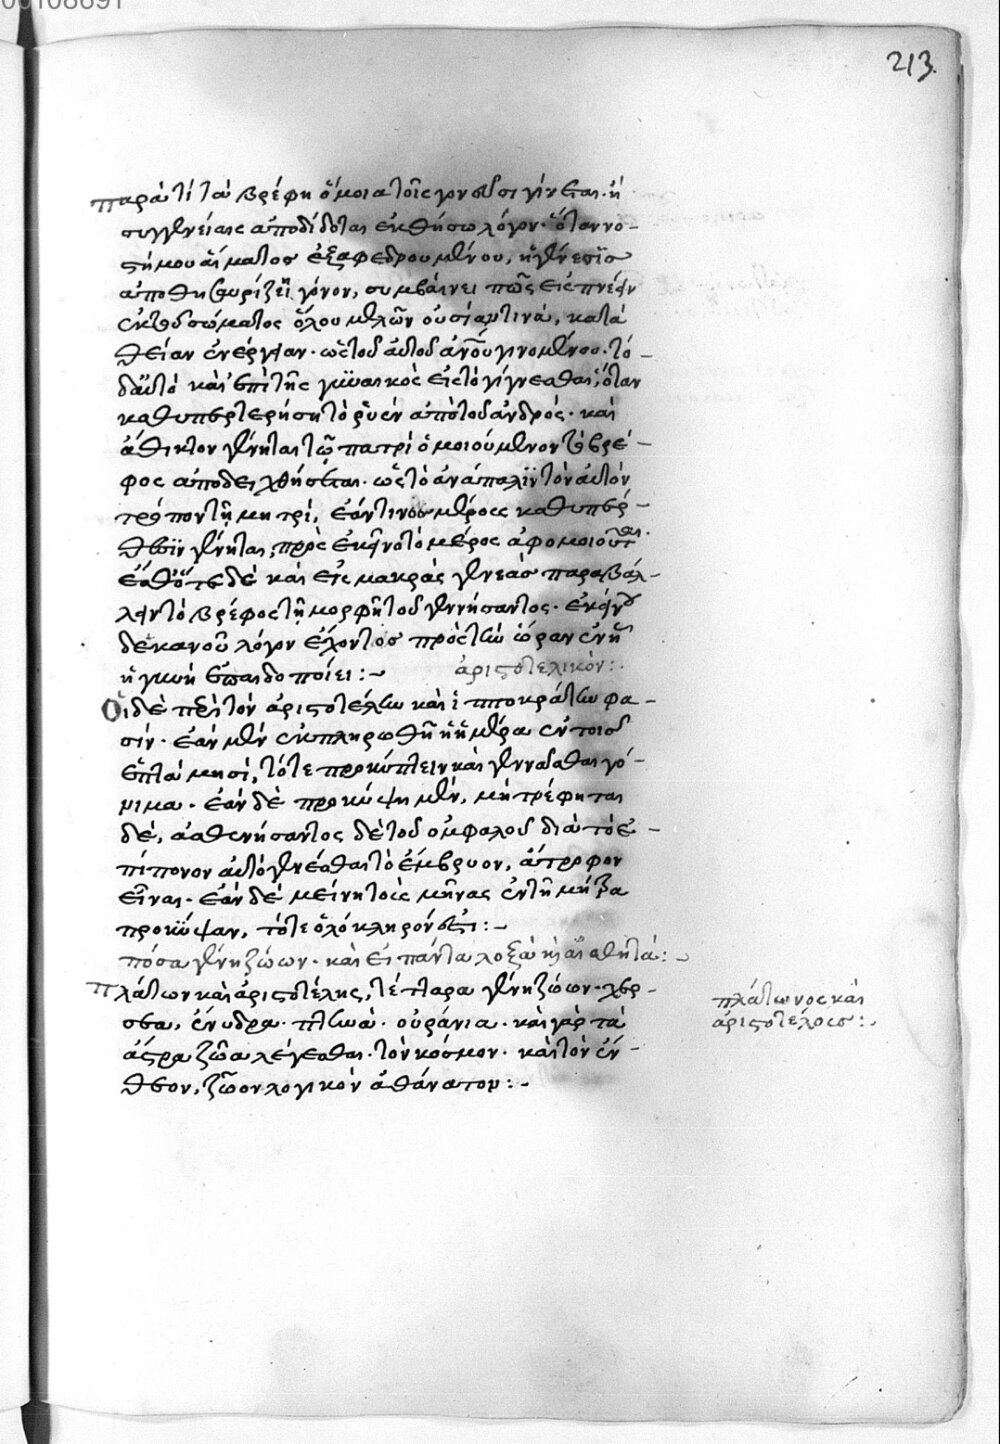 00108691
213.
παρὰ τί τὰ βρέφη ὅμοια τοῖς γονεῦσι γίνεται. ἢ
συγγενείαις ἀποδίδοται ἐκθήσω λόγον. ὅταν νο-
στίμου αἵματος ἐξαφεδρουμένου, ἡ γένεσις
ἀποθησαυρίζει γόνον, συμβαίνει πῶς εἰσπνεῖν
ἐκ τοῦ σώματος ὅλου μελῶν οὐσίαν τινὰ, κατὰ
θείαν ἐνέργειαν. ὡς τοῦ αὐτοῦ ἀνθρώπου γινομένου. τὸ
δ' αὐτὸ καὶ ἐπὶ τῆς γυναικὸς εἰς τὸ γίγνεσθαι, ὅταν
καθυπερτερήσῃ τὸ ῥυὲν ἀπὸ τοῦ ἀνδρός. καὶ
ἄθικτον γένηται τῷ πατρὶ ὁμοιούμενον τὸ βρέ-
φος ἀποδειχθήσεται. ὡς τὸ ἀνάπαλιν τὸν αὐτὸν
τρόπον τῇ μητρί, ἐάν τινος μέρους καθυπέρ-
θεσιν γένηται, πρὸς ἐκεῖνο τὸ μέρος ἀφομοιοῦται.
ἔσθ' ὅτε δὲ καὶ εἰς μακρὰς γενεὰς παραβάλ-
λειν τὸ βρέφος τῇ μορφῇ τοῦ γεννήσαντος. ἐκείνου
δεκανοῦ λόγον ἔχοντος πρὸς τὴν ὥραν ἐν ᾗ
ἡ γυνὴ ἐπαιδοποίει:~ ἀριστοτελικόν:
Οἱ δὲ περὶ τὸν ἀριστοτέλην καὶ ἱπποκράτην φα-
σίν. ἐὰν μὲν ἐκπληρωθῇ ἡ μήτρα ἐν τοῖς
ἑπτὰ μησί, τότε προκύπτειν καὶ γεννᾶσθαι γό-
νιμα. ἐὰν δὲ προκύψῃ μὲν, μὴ τρέφηται
δέ, ἀσθενήσαντος δὲ τοῦ ὀμφαλοῦ διὰ τὸ ἐ-
πίπονον αὐτὸ γενέσθαι τὸ ἔμβρυον, ἄτροφον
εἶναι. ἐὰν δὲ μείνῃ τοὺς μῆνας ἐν τῇ μήτρᾳ
προκύψαν, τότε ὁλόκληρόν ἐστι:~
πόσα γένη ζώων. καὶ εἰ πάντα λοξὰ καὶ αἰσθητά:~
πλάτων καὶ ἀριστοτέλης, τέτταρα γένη ζώων. χερ-
σαα, ἔνυδρα. πτηνὰ. οὐράνια. καὶ γὰρ τὰ
ἄστρα ζῶα λέγεσθαι. τὸν κόσμον. καὶ τὸν ἔν-
θεον, ζῶον λογικὸν ἀθάνατον:~
πλάτωνος καὶ
ἀριστοτέλους:~